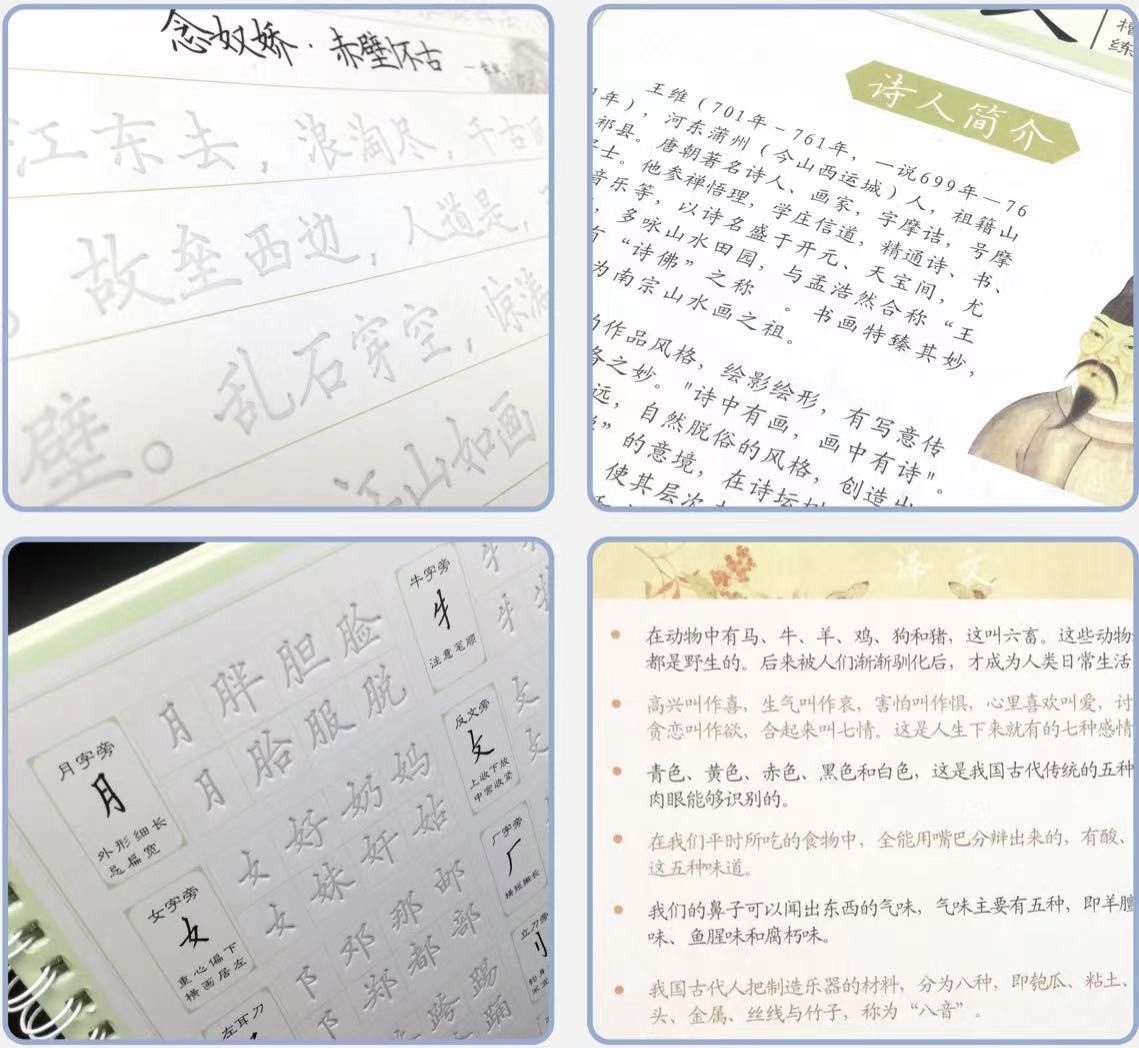 念奴娇·赤壁怀古
江东去，浪淘尽，千古
故垒西边，人道是，
乱石穿空，惊涛
壁。江山如画
诗人简介
王维（701年－761年，一说699年—76
1年），河东蒲州（今山西运城）人，祖籍山
祁县。唐朝著名诗人、画家，字摩诘，号摩
士。他参禅悟理，学庄信道，精通诗、书、
音乐等，以诗名盛于开元、天宝间，尤
，多咏山水田园，与孟浩然合称“王
“诗佛”之称 。书画特臻其妙，
为南宗山水画之祖。
作品风格，绘影绘形，有写意传
之妙。"诗中有画，画中有诗"。
远，自然脱俗的风格，创造出
”的意境，在诗坛树
使其层次
牛字旁
牛
注意笔顺
月字旁
月
外形细长
忌扁宽
月胖胆脸
月胎服脱
反文旁
攵
上收下放
中宫收紧
女字旁
女
重心偏下
横画居左
女好奶妈
女妹奸姑
厂字旁
厂
横短撇长
立刀旁
刂
左耳刀
阝邓那邮
阝郑都部
跨踢
踊
译文
在动物中有马、牛、羊、鸡、狗和猪，这叫六畜。这些动物
都是野生的。后来被人们渐渐驯化后，才成为人类日常生活
高兴叫作喜，生气叫作哀，害怕叫作惧，心里喜欢叫爱，讨
贪恋叫作欲，合起来叫七情。这是人生下来就有的七种感情
青色、黄色、赤色、黑色和白色，这是我国古代传统的五种
肉眼能够识别的。
在我们平时所吃的食物中，全能用嘴巴分辩出来的，有酸、
这五种味道。
我们的鼻子可以闻出东西的气味，气味主要有五种，即羊膻
味、鱼腥味和腐朽味。
我国古代人把制造乐器的材料，分为八种，即匏瓜、粘土、
头、金属、丝线与竹子，称为“八音”。